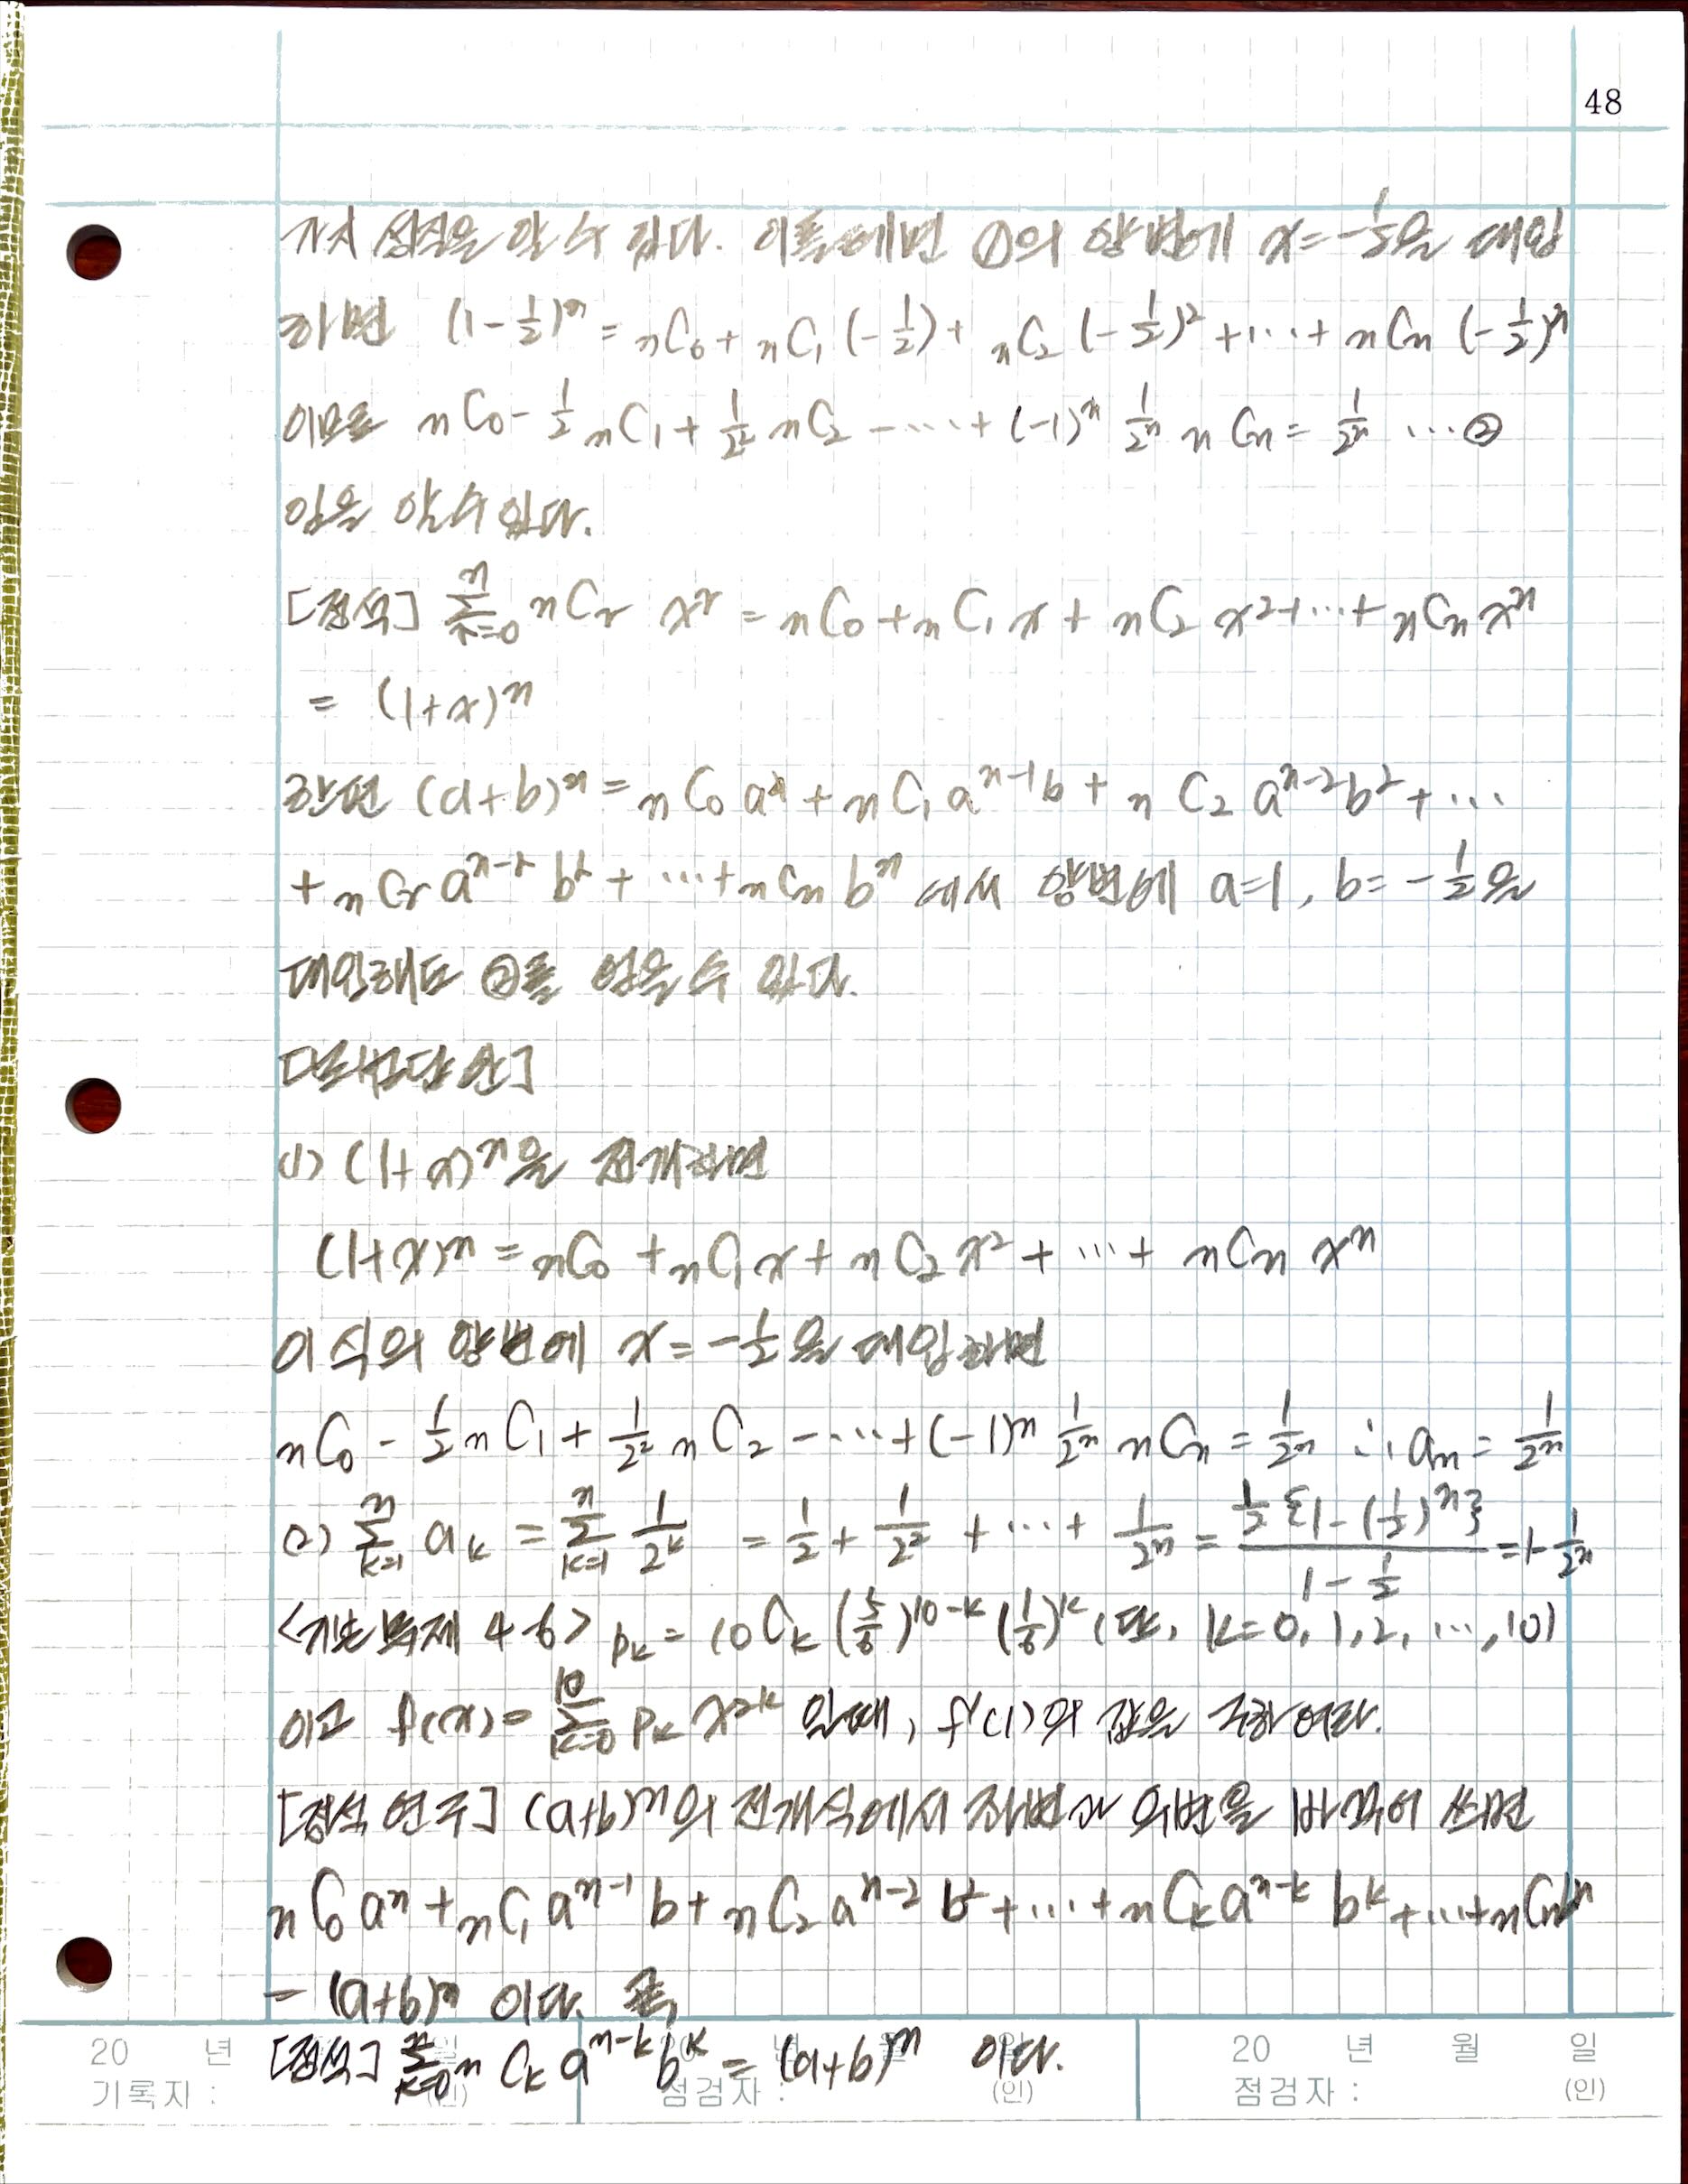 48
가지 성질을 알 수 있다. 이를테면 ①의 양변에 x=-1/2을 대입
하면 (1-1/2)^n = nC0 + nC1 (-1/2) + nC2 (-1/2)^2 + ... + nCn (-1/2)^n
이므로 nC0 - 1/2 nC1 + 1/2^2 nC2 - ... + (-1)^n 1/2^n nCn = 1/2^n ... ②
임을 알 수 있다.
[정석] Σ_{r=0}^{n} nCr x^r = nC0 + nC1 x + nC2 x^2 + ... + nCn x^n
= (1+x)^n
한편 (a+b)^n = nC0 a^n + nC1 a^{n-1} b + nC2 a^{n-2} b^2 + ...
+ nCr a^{n-r} b^r + ... + nCn b^n 에서 양변에 a=1, b=-1/2을
대입해도 ②를 얻을 수 있다.
[모범답안]
(1) (1+x)^n을 전개하면
(1+x)^n = nC0 + nC1 x + nC2 x^2 + ... + nCn x^n
이 식의 양변에 x=-1/2을 대입하면
nC0 - 1/2 nC1 + 1/2^2 nC2 - ... + (-1)^n 1/2^n nCn = 1/2^n ∴ an = 1/2^n
(2) Σ_{k=1}^{n} ak = Σ_{k=1}^{n} 1/2^k = 1/2 + 1/2^2 + ... + 1/2^n = 1/2{1-(1/2)^n} / (1-1/2) = 1-1/2^n
<기본문제 4-6> pk = 10Ck (5/6)^{10-k} (1/6)^k (단, k=0, 1, 2, ..., 10)
이고 f(x) = Σ_{k=0}^{10} pk x^{2k} 일 때, f'(1)의 값을 구하여라.
[정석연구] (a+b)^n의 전개식에서 좌변과 우변을 바꾸어 쓰면
nC0 a^n + nC1 a^{n-1} b + nC2 a^{n-2} b^2 + ... + nCk a^{n-k} b^k + ... + nCn b^n
= (a+b)^n 이다. 곧,
[정석] Σ_{k=0}^{n} nCk a^{n-k} b^k = (a+b)^n 이다.
20 년 월 일
기록자 : (인)
20 년 월 일
점검자 : (인)
20 년 월 일
점검자 : (인)